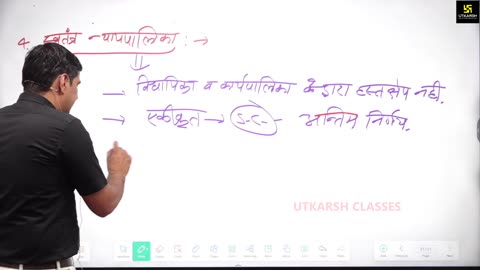 UTKARSH
4. स्वतंत्र न्यायपालिका : →
→ विधायिका व कार्यपालिका के द्वारा हस्तक्षेप नहीं.
→ एकीकृत → S.C. - अन्तिम निर्णय.
UTKARSH CLASSES